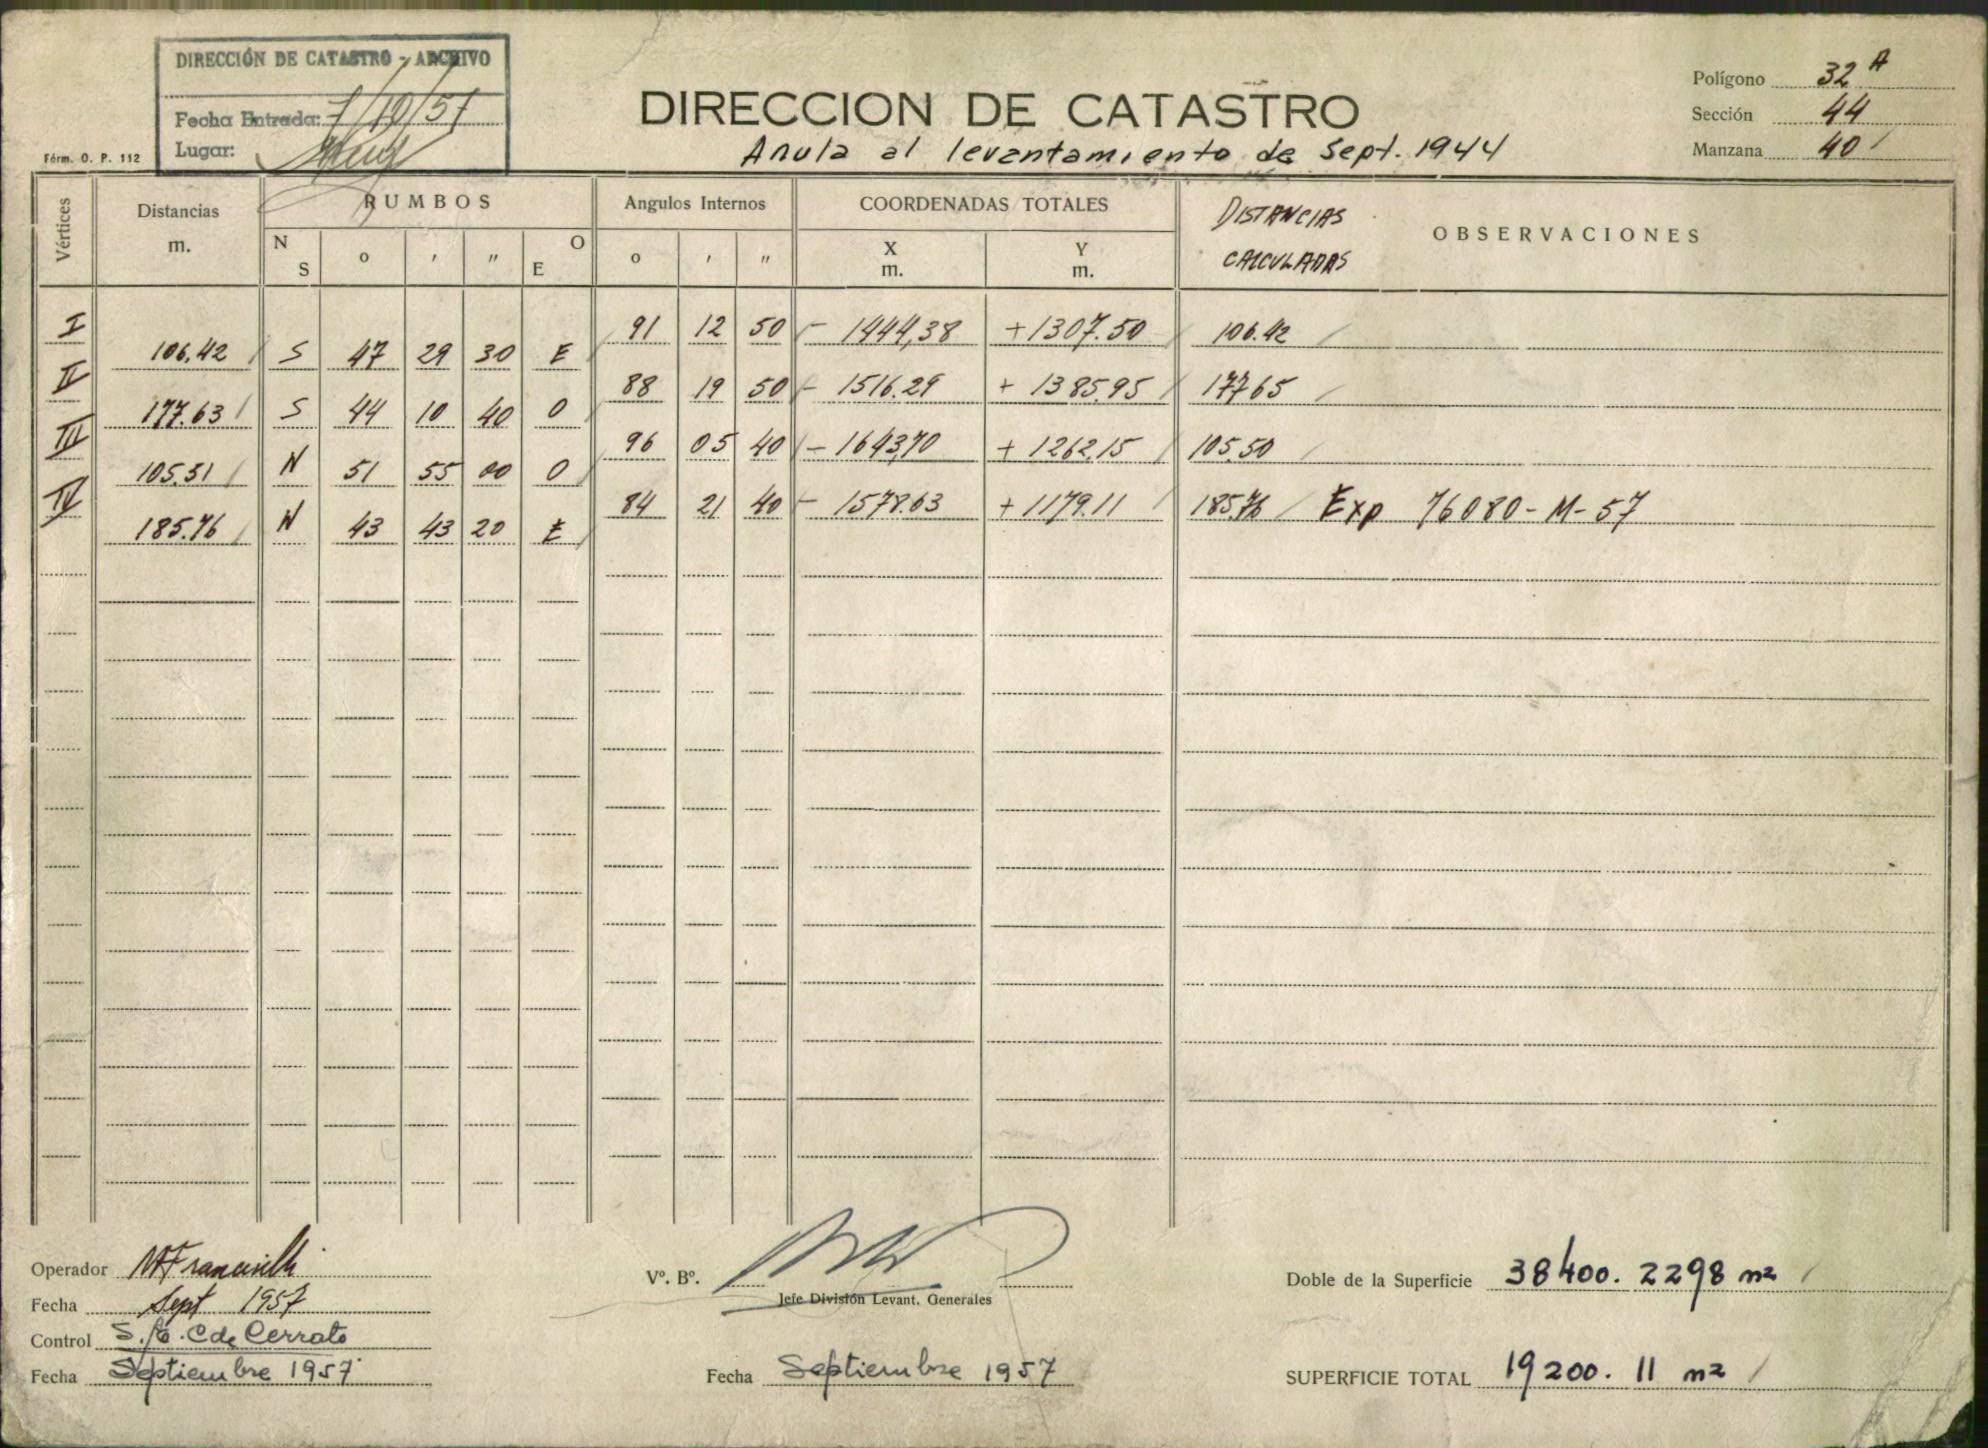 DIRECCIÓN DE CATASTRO - ARCHIVO
Fecha Entrada: 7/10/57
Lugar:
Fórm. O. P. 112
DIRECCION DE CATASTRO
Anula al levantamiento de Sept. 1944
Polígono 32 A
Sección 44
Manzana 40
Vértices Distancias m. RUMBOS Angulos Internos COORDENADAS TOTALES DISTANCIAS CALCULADAS OBSERVACIONES
N S o ' " O E o ' " X m. Y m.
I 91 12 50 - 1444,38 +1307.50 106.42
106.42 S 47 29 30 E
II 88 19 50 - 1516.29 + 1385.95 17765
177.63 S 44 10 40 O
III 96 05 40 - 1643,70 + 1262.15 105.50
105.51 N 51 55 00 O
IV 84 21 40 - 1578.63 +1179.11 185.76 Exp 76080-M-57
185.76 N 43 43 20 E
Operador
Fecha Sept 1957
Control C de Cerrato
Fecha Septiembre 1957
Vº. Bº.
Jefe División Levant. Generales
Fecha Septiembre 1957
Doble de la Superficie 38400. 2298 m2
SUPERFICIE TOTAL 19200. 11 m2